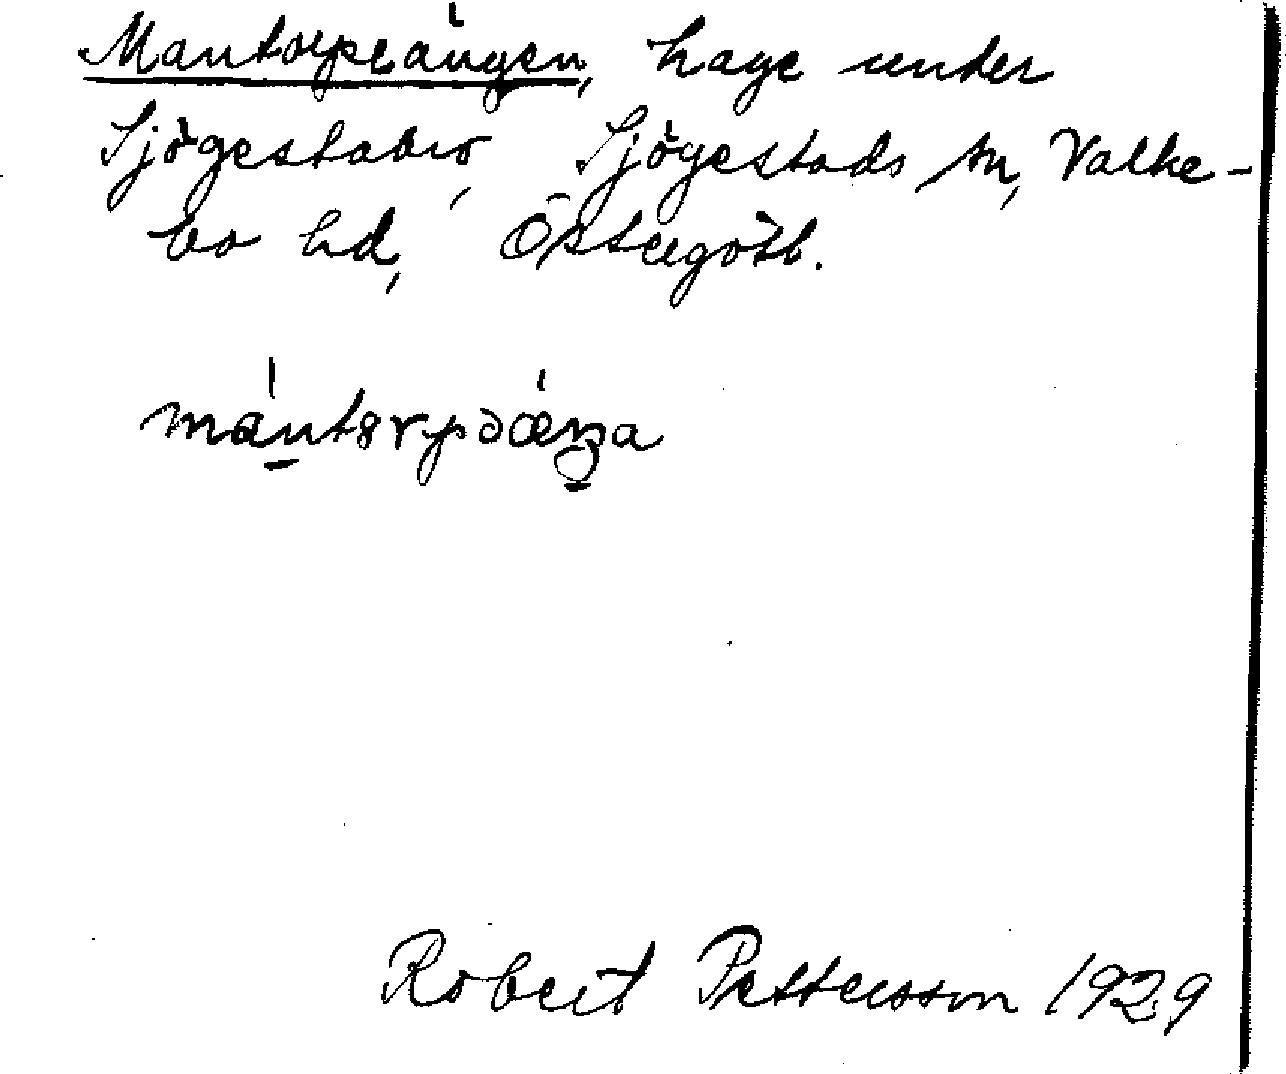 Mantorpeängen, hage under
Sjögestabro, Sjögestads sn, Valke-
bo hd, Östergötl.
mántɵrpəæŋa
Robert Pettersson 1929